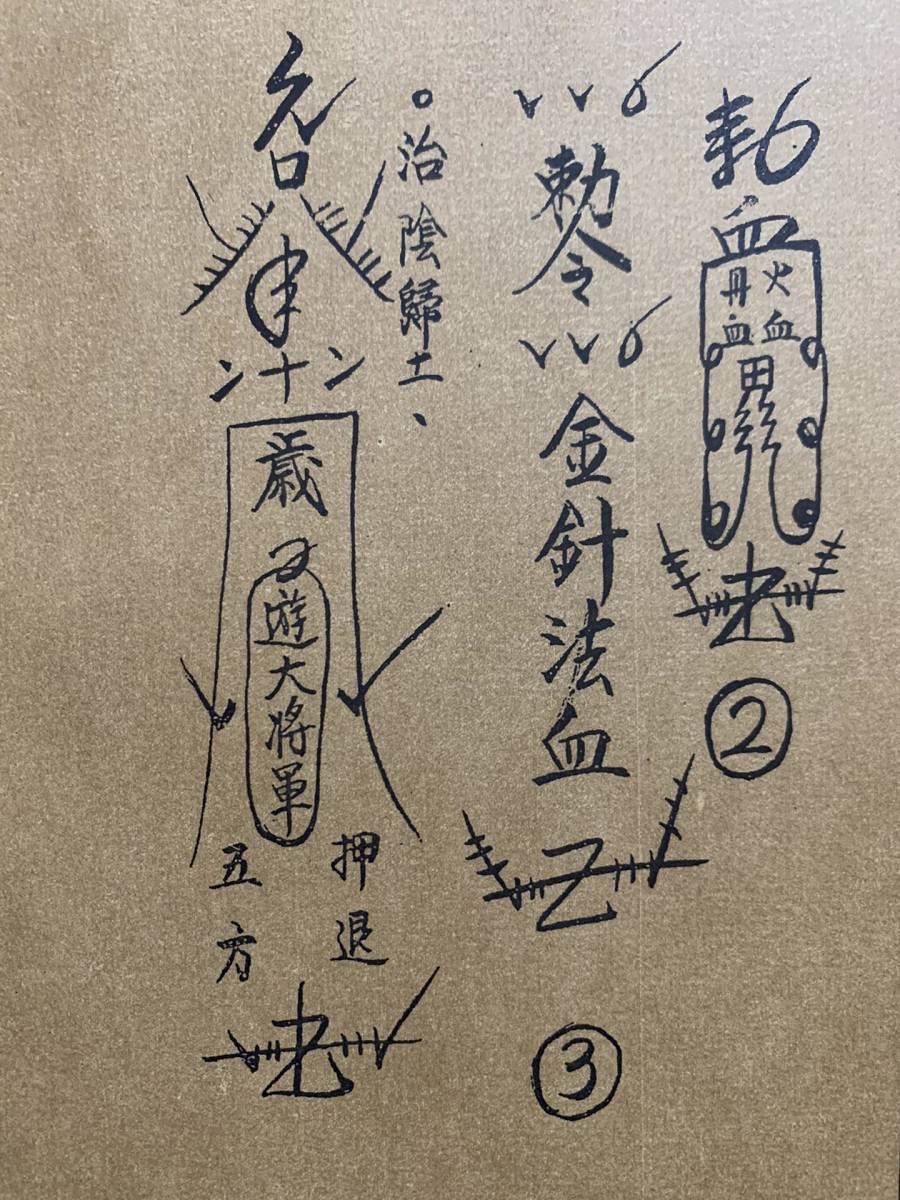 血
丹火
血血
田
②
勅令
金針法血
③
。治陰歸土、
十
歳
遊大將軍
押退
五方